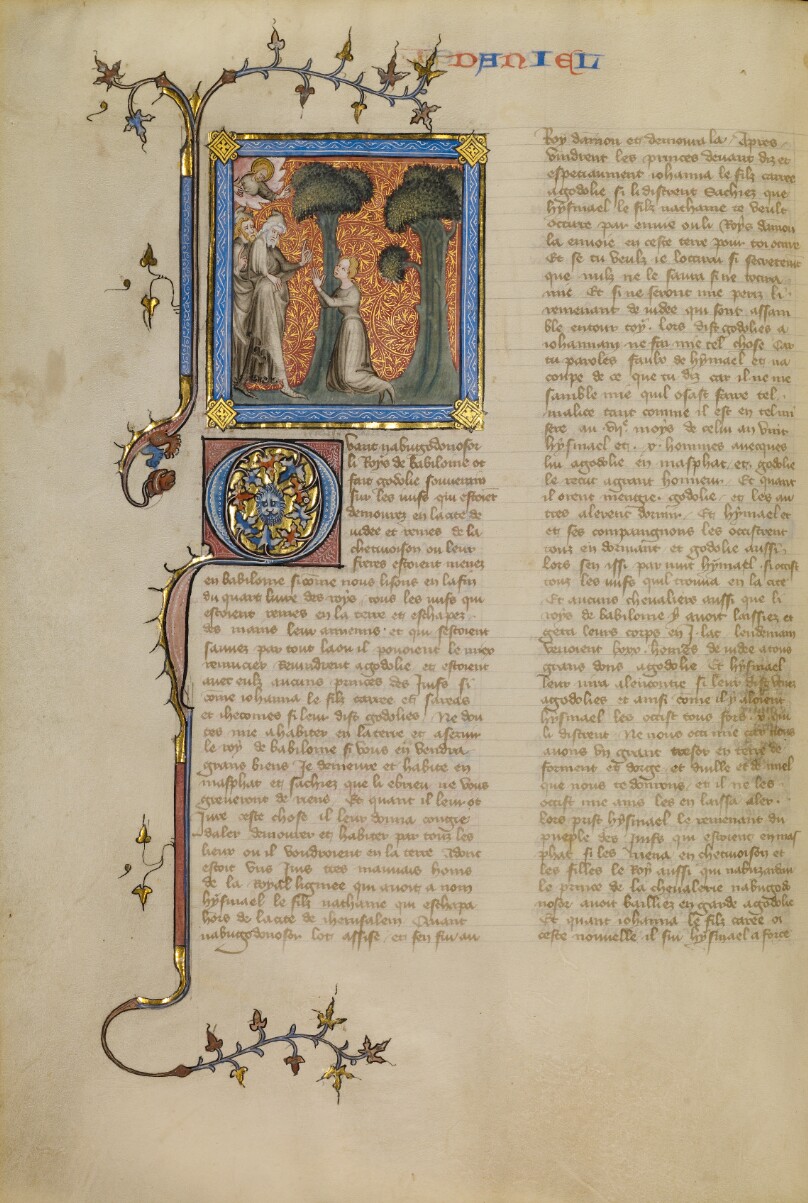 DANIEL
Quant nabugodonosor
li Roys de babiloine ot
fait godolie souverain
sur les iuifs qui estoient
demourez en la cite de
iudee et remes de la
chetivoison ou leur
freres estoient menez
en babiloine si come nous lisons en la fin
du quart livre des roys. tous les iuifs qui
estoient remes en la terre et eschapez
des mains leur anemis. et qui sestoient
sauvez par tout la ou il povoient le mieux
remucier revindrent a godolie et estoient
avec eulz aucuns princes des Juifs si
come iohanna le filz caree et sareas
et iheconies si leur dist godolies. Ne dou
tes mie a habiter en la terre et a servir
le roy de babiloine si vous en vendra
grans biens Je demeure et habite en
masphat et sachiez que li ebrieu ne vous
greveront de riens Et quant il leur ot
Jure ceste chose il leur donna congie
daler demourer et habiter par touz les
lieux ou il voudroient en la terre Adont
estoit uns Juis tres mauvais homs
de la royal lignee qui avoit a nom
hysmael le filz nathanie qui eschapa
hors de la cite de iherusalem Quant
nabugodonosor lot assise. et sen fui au
Roy damon et demoura la. Apres
vindrent les princes devant diz et
especiaument iohanna le filz caree
a godolie si li distrent Sachiez que
hysmael le filz nathanie te veult
occire par envie ou li Roys damon
la envoie en ceste terre pour toi occire
Et se tu veulz ie locirai si secretement
que nulz ne le saura si ne tocira
mie Et si ne seront mie periz li
remenant de iudee qui sont assam
ble entour toy. lors dist godolies a
iohannam ne fai mie tel chose Car
tu paroles faulx de hysmael et na
coupe de ce que tu diz car il ne me
samble mie quil osast faire tel
malice tant comme il est en
hysmael et .x. hommes avecques
lui a godolie en masphat. et. godolie
le recut a grant honneur. Et quant
il orent mengie. godolie. et les au
tres alerent dormir. Et hysmael et
et ses compaingnons les occistrent
touz en dormant et godolie aussi.
lors sen issi par nuit hysmael. si occist
touz les iuifs quil trouva en la cite
Et aucuns chevaliers aussi que li
roys de babiloine y avoit laissiez et
geta leurs corps en .J. lac lendemain
venoient hommes de iudee a tous
grans dons a godolie Et hysmael
leur vint a lencontre si leur dist
a godolies et ainsi come il y aloient
hysmael les occist tous fors .x. qui
li distrent Ne nous occi mie car nous
avons un grant tresor en terre de
forment et dorge et duille et de miel
que nous te donrons. et il ne les
occist mie ains les en laissa aler.
lors prist hysmael le remenant du
pueple des Juifs qui estoient en mas
phat si les mena en chetivoison et
les filles le Roy aussi qui nabuzardan
le prince de la chevalerie nabugod
nosor avoit bailliez en garde a godolie
Et quant iohanna le filz caree oi
ceste nouvelle il sui hysmael a force